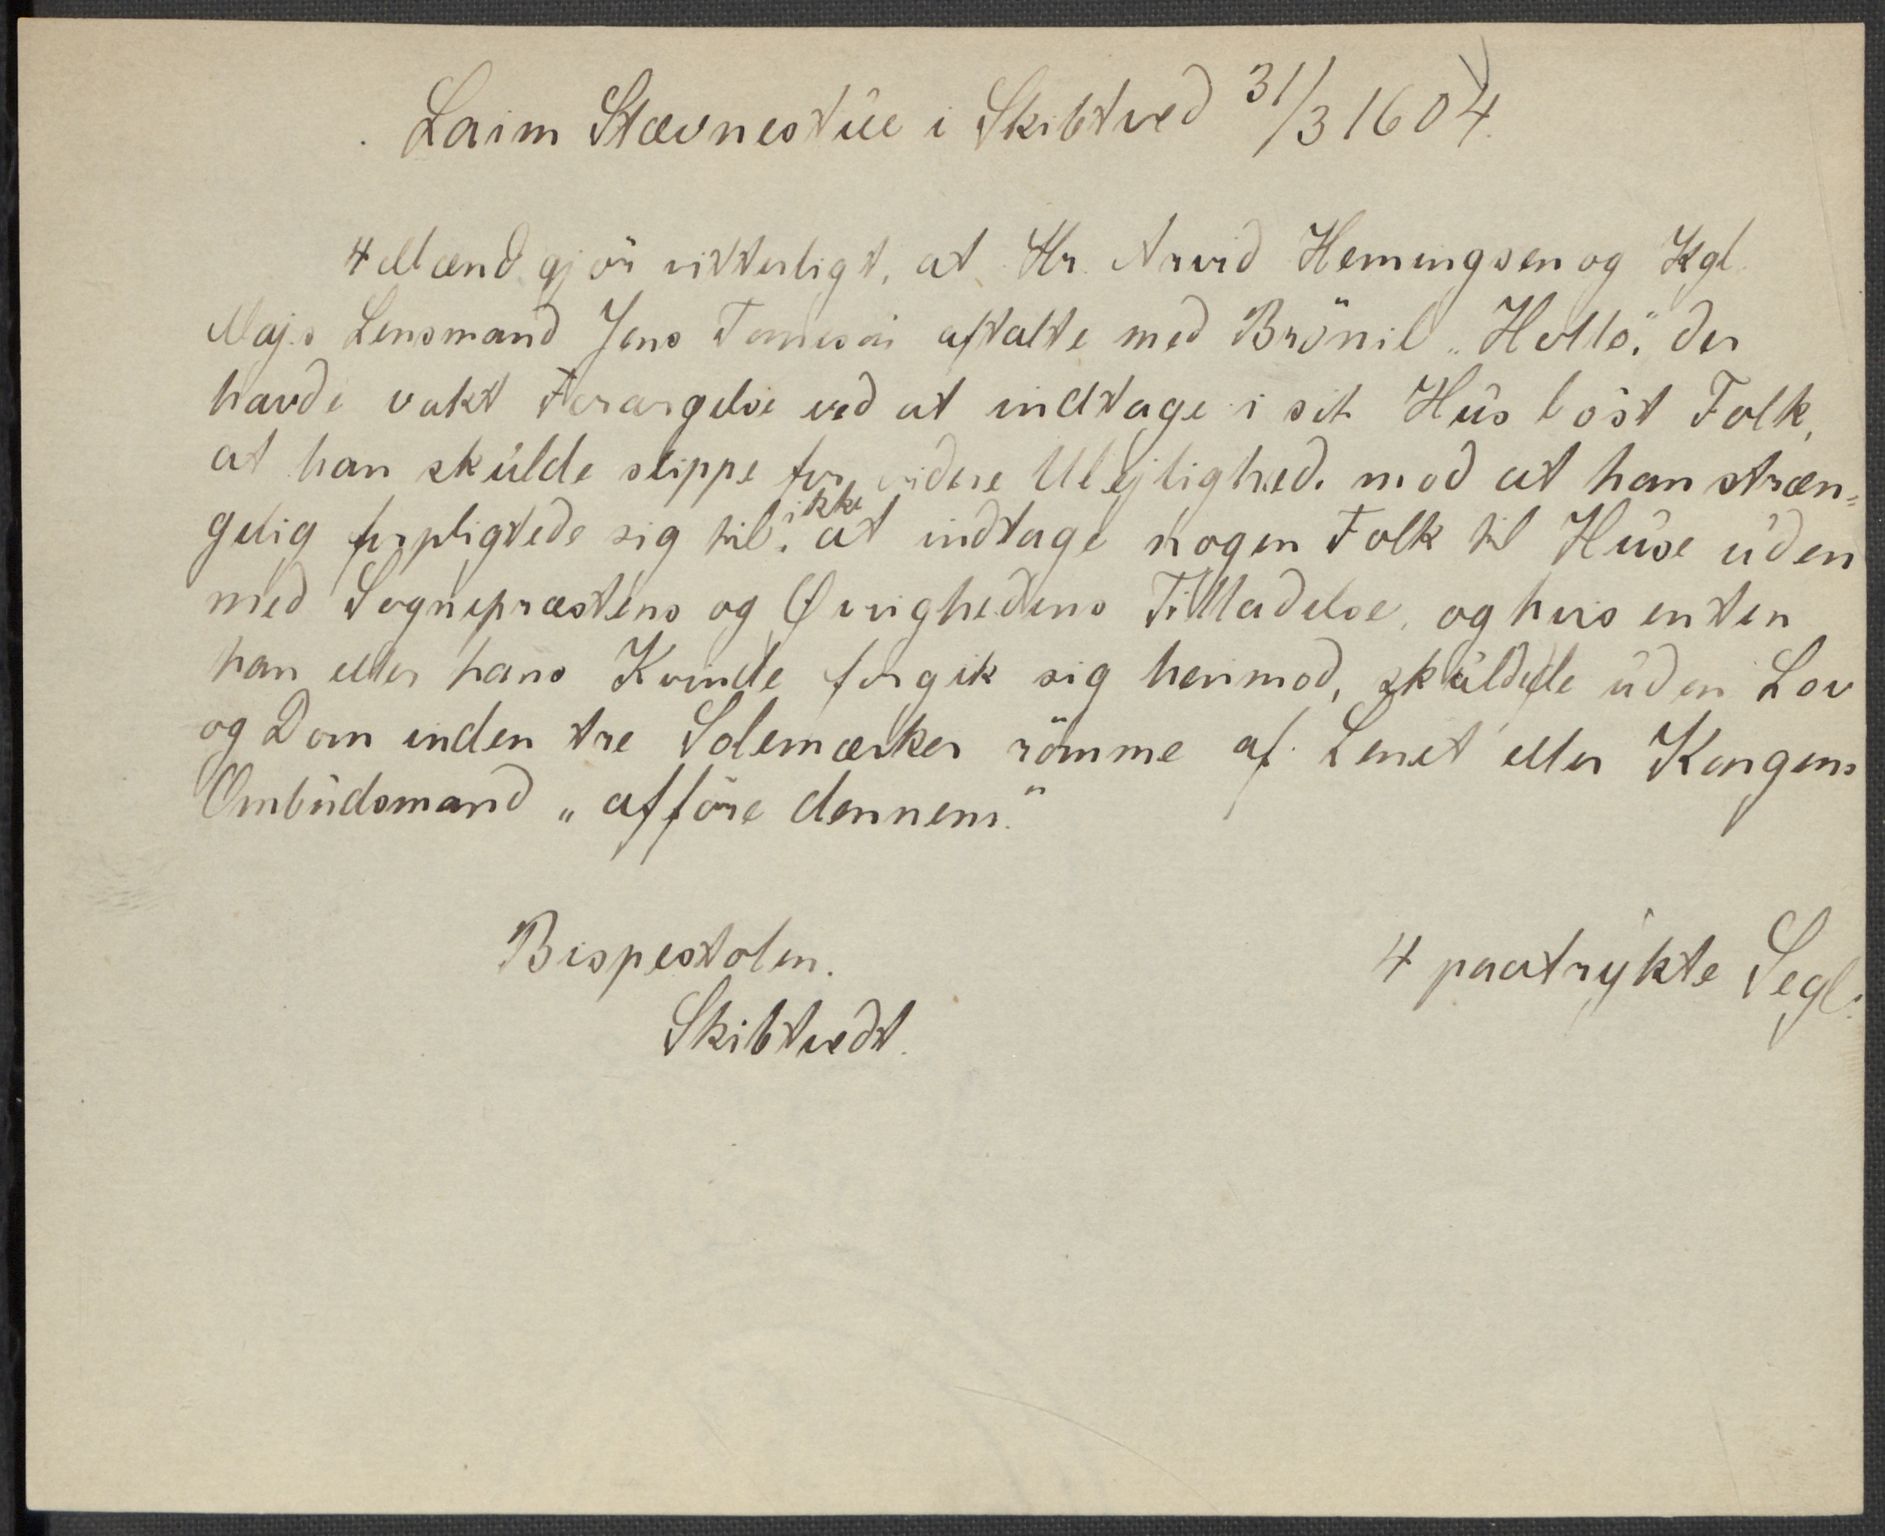 Laim Stævnestue i Skibtved 31/3 1604.
4 Mænd gjör vitterligt, at Hr. Arvid Hemingsen og Kgl.
Maj.s Lensmand Jens aftalte med Brönil "Hollo", der
havde vakt Forargelse ved at indtage i sit Hus löst Folk,
at han skulde slippe for videre Ulejlighed. mod at han stræn=
gelig forpligtede sig til ikke at indtage nogen Folk til Huse uden
med Sognepræstens og Øvrighedens Tilladelse, og hvis enten
han eller hans Kvinde forgik sig herimod, skulde de uden Lov
og Dom inden tre Solemærker römme af Lenet eller Kongens
Ombudsmand „afföre dennem."
Bispestolen.
4 paatrykte Segl.
Skibtvedt.